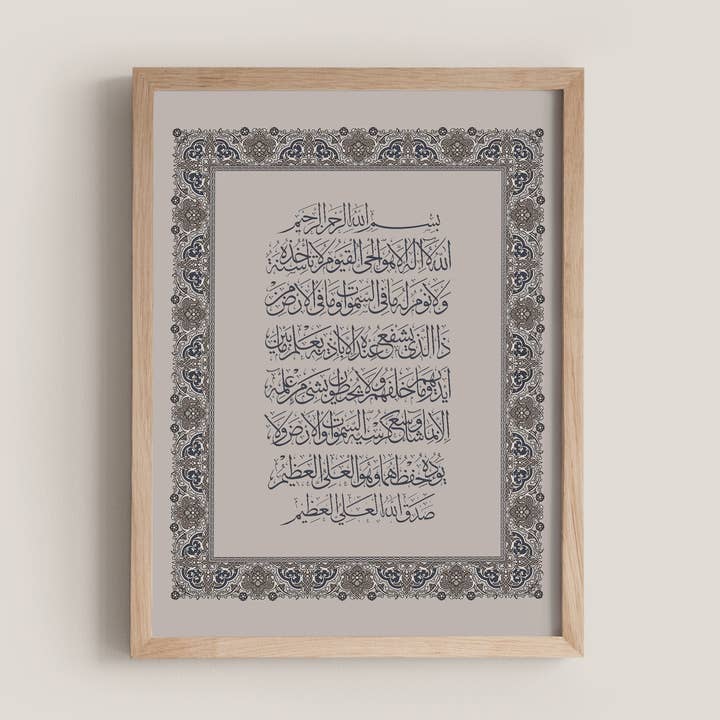 بسم الله الرحمن الرحيم
الله لا اله الا هو الحي القيوم لا تأخذه سنة
ولا نوم له ما في السموات وما في الارض من
ذا الذي يشفع عنده الا باذنه يعلم ما بين
ايديهم وما خلفهم ولا يحيطون بشئ من علمه
الا بما شاء وسع كرسيه السموات والارض ولا
يؤده حفظهما وهو العلي العظيم
صدق الله العلي العظيم